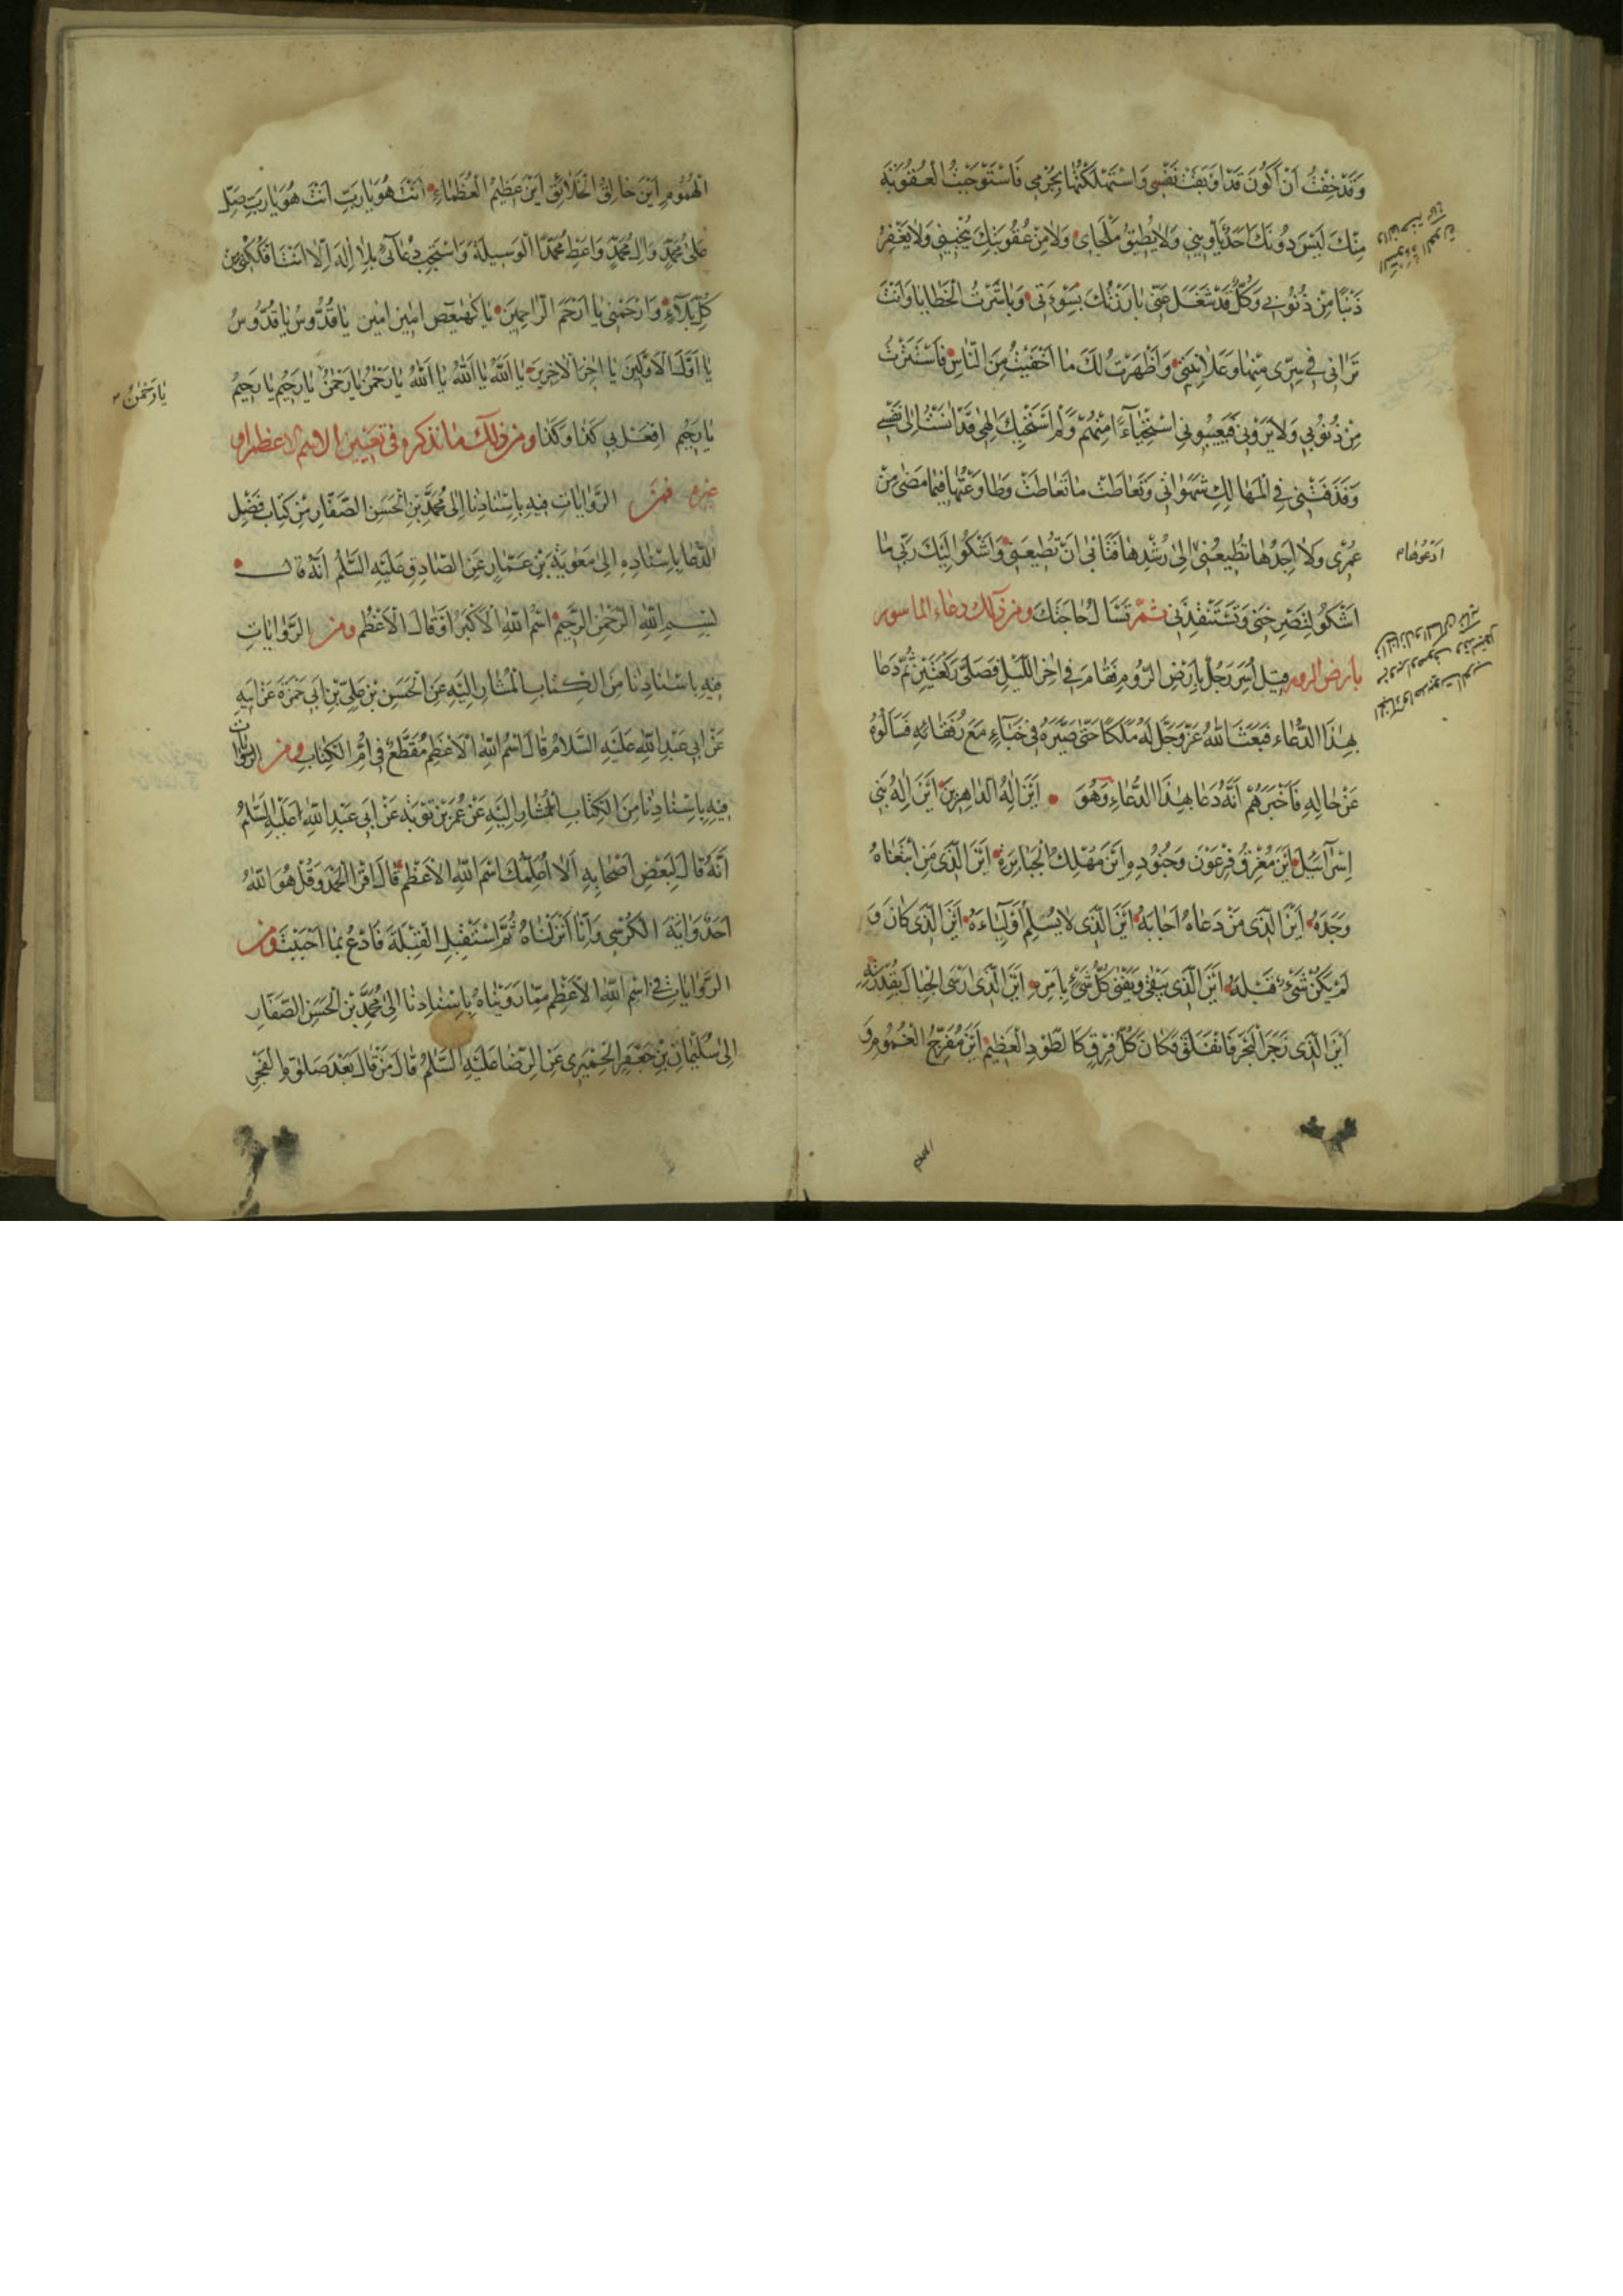 وَقَدْ خِفْتُ اَنْ اَكُونَ قَدْ اَوْبَقْتُ نَفْسِى وَاسْتَهْلَكْتُهٰا بِجُرْمِى فَاسْتَوْجَبْتُ الْعُقُوبَةَ
مِنْكَ لَيْسَ دُونَكَ اَحَدٌ يَأْوِينِى وَلاٰ يُطِيقُ مَلْجَاىَ وَلاٰ مِنْ عُقُوبَتِكَ يُنْجِينِى وَلاٰ يَغْفِرُ
ذَنْبًا مِنْ ذُنُوبِى وَكُلٌّ قَدْ شَغَلَ عَنِّى بٰارَزْتُكَ بِسَوْءَتِى وَبٰاشَرْتُ الْخَطٰايٰا وَاَنْتَ
تَرٰانِى فِى سِرِّى مِنْهٰا وَعَلاٰنِيَتِى وَاَظْهَرْتُ لَكَ مٰا اَخْفَيْتُ مِنَ النّٰاسِ فَاسْتَتَرْتُ
مِنْ ذُنُوبِى وَلاٰ يَرَوْنِى فَيَعِيبُونِى اسْتِحْيٰآءً مِنْهُمْ وَلَمْ اَسْتَحْيِكَ اِلٰهِى قَدْ اٰنَسْتُ اِلىٰ نَفْسِى
وَقَذَفَتْنِى فِى الْمَهٰالِكِ شَهَوٰاتِى وَتَعٰاطَتْ مٰا تَعٰاطَتْ وَطٰاوَعْتُهٰا فِيمٰا مَضىٰ مِنْ
عُمْرِى وَلاٰ اَجِدُهٰا تُطِيعُنِى اِلىٰ رُشْدِهٰا فَتَابىٰ اَنْ تُطِيعَنِى وَاَشْكُو اِلَيْكَ رَبِّى مٰا
اَشْكُو لِتُصْرِخَنِى وَتَسْتَنْقِذَنِى ثمّ تَسْأَلُ حٰاجَتَكَ ومن ذلك دعاء الماسور
بارض الروم قِيلَ اُسِرَ رَجُلٌ بِاَرْضِ الرُّومِ فَقٰامَ فِى اٰخِرِ اللَّيْلِ فَصَلّىٰ رَكْعَتَيْنِ ثُمَّ دَعٰا
بِهٰذَا الدُّعٰاءِ فَبَعَثَ اللّٰهُ عَزَّ وَجَلَّ لَهُ مَلَكًا حَتّىٰ صَيَّرَهُ فِى خِبٰآءٍ مَعَ رُفَقٰائِهِ فَسَاَلُوهُ
عَنْ حٰالِهِ فَاَخْبَرَهُمْ اَنَّهُ دَعٰا بِهٰذَا الدُّعٰاءِ وَهُوَ اَيْنَ اِلٰهُ الدّٰاهِرِينَ اَيْنَ اِلٰهُ بَنِى
اِسْرٰآئِيلَ اَيْنَ مُغْرِقُ فِرْعَوْنَ وَجُنُودِهِ اَيْنَ مُهْلِكُ الْجَبٰابِرَةِ اَيْنَ الَّذِى مَنِ ابْتَغٰاهُ
وَجَدَهُ اَيْنَ الَّذِى مَنْ دَعٰاهُ اَجٰابَهُ اَيْنَ الَّذِى لاٰ يُسْلِمُ اَوْلِيٰاءَهُ اَيْنَ الَّذِى كٰانَ وَ
لَمْ يَكُنْ شَىْءٌ قَبْلَهُ اَيْنَ الَّذِى يَبْقىٰ وَيَفْنىٰ كُلُّ شَىْءٍ بِاَمْرِهِ اَيْنَ الَّذِى اَرْسَى الْجِبٰالَ بِقُدْرَتِهِ
اَيْنَ الَّذِى زَجَرَ الْبَحْرَ فَانْفَلَقَ فَكٰانَ كُلُّ فِرْقٍ كَالطَّوْدِ الْعَظِيمِ اَيْنَ مُفَرِّجُ الْغُمُومِ وَ
ادعوها م
الهموم
الْهُمُومِ اَيْنَ خٰالِقُ الْخَلاٰئِقِ اَيْنَ عَظِيمُ الْعُظَمٰاءِ اَنْتَ هُوَ يٰا رَبِّ اَنْتَ هُوَ يٰا رَبِّ صَلِّ
عَلىٰ مُحَمَّدٍ وَاٰلِ مُحَمَّدٍ وَاَعْطِ مُحَمَّدًا الْوَسِيلَةَ وَاسْتَجِبْ دُعٰآئِى بِلاٰ اِلٰهَ اِلاّٰ اَنْتَ فَكُكَّنِى مِنْ
كُلِّ بَلاٰءٍ وَارْحَمْنِى يٰا اَرْحَمَ الرّٰاحِمِينَ يٰا كٓهٰيٰعٓصٓ اٰمِينَ اٰمِينَ يٰا قُدُّوسُ يٰا قُدُّوسُ
يٰا اَوَّلَ الْاَوَّلِينَ يٰا اٰخِرَ الْاٰخِرِينَ يٰا اَللّٰهُ يٰا اَللّٰهُ يٰا اَللّٰهُ يٰا رَحْمٰنُ يٰا رَحْمٰنُ يٰا رَحِيمُ يٰا رَحِيمُ
يٰا رَحْمٰنُ
يٰا رَحِيمُ افْعَلْ بِى كَذٰا وَكَذٰا ومن ذلك ما نذكره فى تعيين الاسم الاعظم او
غيره فمن الرِّوٰايٰاتِ فِيهِ بِاِسْنٰادِنٰا اِلىٰ مُحَمَّدِ بْنِ الْحَسَنِ الصَّفّٰارِ مِنْ كِتٰابِ فَضْلِ
الدُّعٰا بِاِسْنٰادِهِ اِلىٰ مُعٰوِيَةَ بْنِ عَمّٰارٍ عَنِ الصّٰادِقِ عَلَيْهِ السَّلٰمُ اَنَّهُ قٰالَ
بِسْمِ اللّٰهِ الرَّحْمٰنِ الرَّحِيمِ اسْمُ اللّٰهِ الْاَكْبَرُ اَوْ قٰالَ الْاَعْظَمُ ومن الرِّوٰايٰاتِ
فِيهِ بِاِسْنٰادِنٰا مِنَ الْكِتٰابِ الْمُشٰارِ اِلَيْهِ عَنِ الْحَسَنِ بْنِ عَلِىِّ بْنِ اَبِى حَمْزَةَ عَنْ اَبِيهِ
عَنْ اَبِى عَبْدِ اللّٰهِ عَلَيْهِ السَّلاٰمُ قٰالَ اسْمُ اللّٰهِ الْاَعْظَمِ مُقَطَّعٌ فِى اُمِّ الْكِتٰابِ ومن الرِّوٰايٰاتِ
فِيهِ بِاِسْنٰادِنٰا مِنَ الْكِتٰابِ الْمُشٰارِ اِلَيْهِ عَنْ عُمَرَ بْنِ تَوْبَةَ عَنْ اَبِى عَبْدِ اللّٰهِ عَلَيْهِ السَّلٰمُ
اَنَّهُ قٰالَ لِبَعْضِ اَصْحٰابِهِ اَلاٰ اُعَلِّمُكَ اسْمَ اللّٰهِ الْاَعْظَمَ قٰالَ اقْرَأِ الْحَمْدَ وَقُلْ هُوَ اللّٰهُ
اَحَدٌ وَاٰيَةَ الْكُرْسِى وَاِنّٰا اَنْزَلْنٰاهُ ثُمَّ اسْتَقْبِلِ الْقِبْلَةَ فَادْعُ بِمٰا اَحْبَبْتَ ومن
الرِّوٰايٰاتِ فِى اسْمِ اللّٰهِ الْاَعْظَمِ مِمّٰا رَوَيْنٰاهُ بِاِسْنٰادِنٰا اِلىٰ مُحَمَّدِ بْنِ الْحَسَنِ الصَّفّٰارِ
اِلىٰ سُلَيْمٰانَ بْنِ جَعْفَرٍ الْحِمْيَرِى عَنِ الرِّضٰا عَلَيْهِ السَّلٰمُ قٰالَ مَنْ قٰالَ بَعْدَ صَلٰوةِ الْفَجْرِ